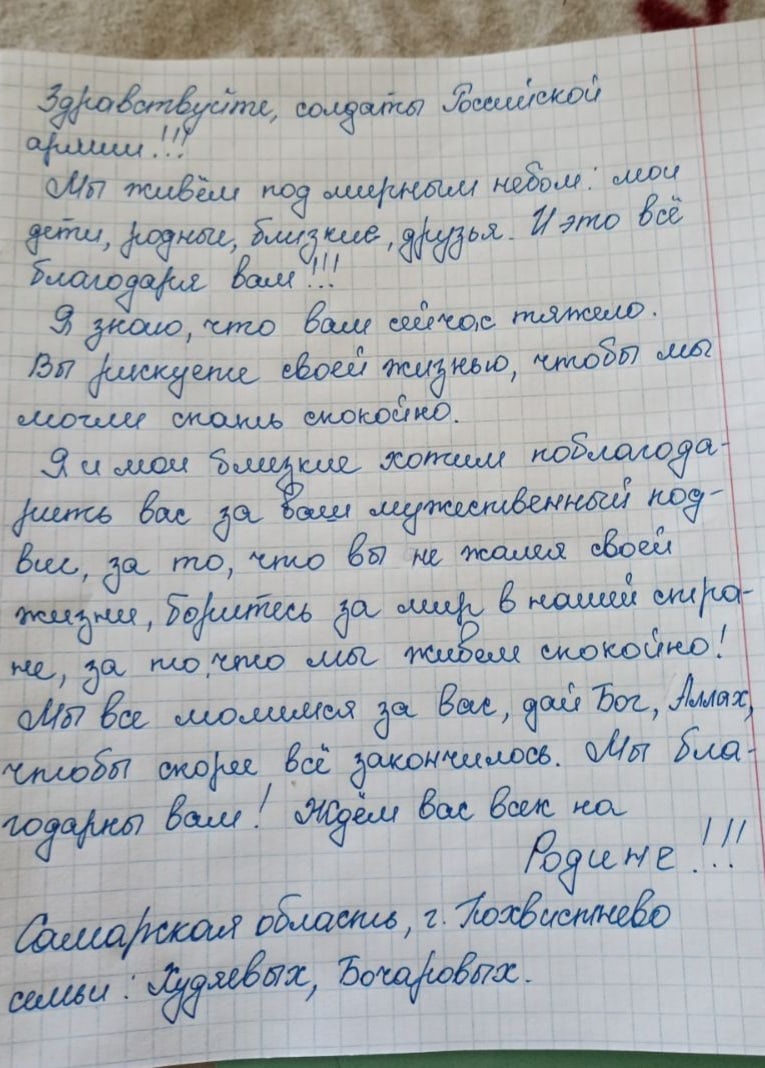 Здравствуйте, солдаты Российской
армии!!!
Мы живём под мирным небом: мои
дети, родные, близкие, друзья. И это всё
благодаря вам!!!
Я знаю, что вам сейчас тяжело.
Вы рискуете своей жизнью, чтобы мы
могли спать спокойно.
Я и мои близкие хотим поблагода-
рить вас за ваш мужественный под-
виг, за то, что вы не жалея своей
жизни, боритесь за мир в нашей стра-
не, за то, что мы живем спокойно!
Мы все молимся за вас, дай Бог, Аллах,
чтобы скорее всё закончилось. Мы бла-
годарны вам! Ждём вас всех на
Родине!!!
Самарская область, г. Похвистнево
семьи: Худяевых, Бочаровых.